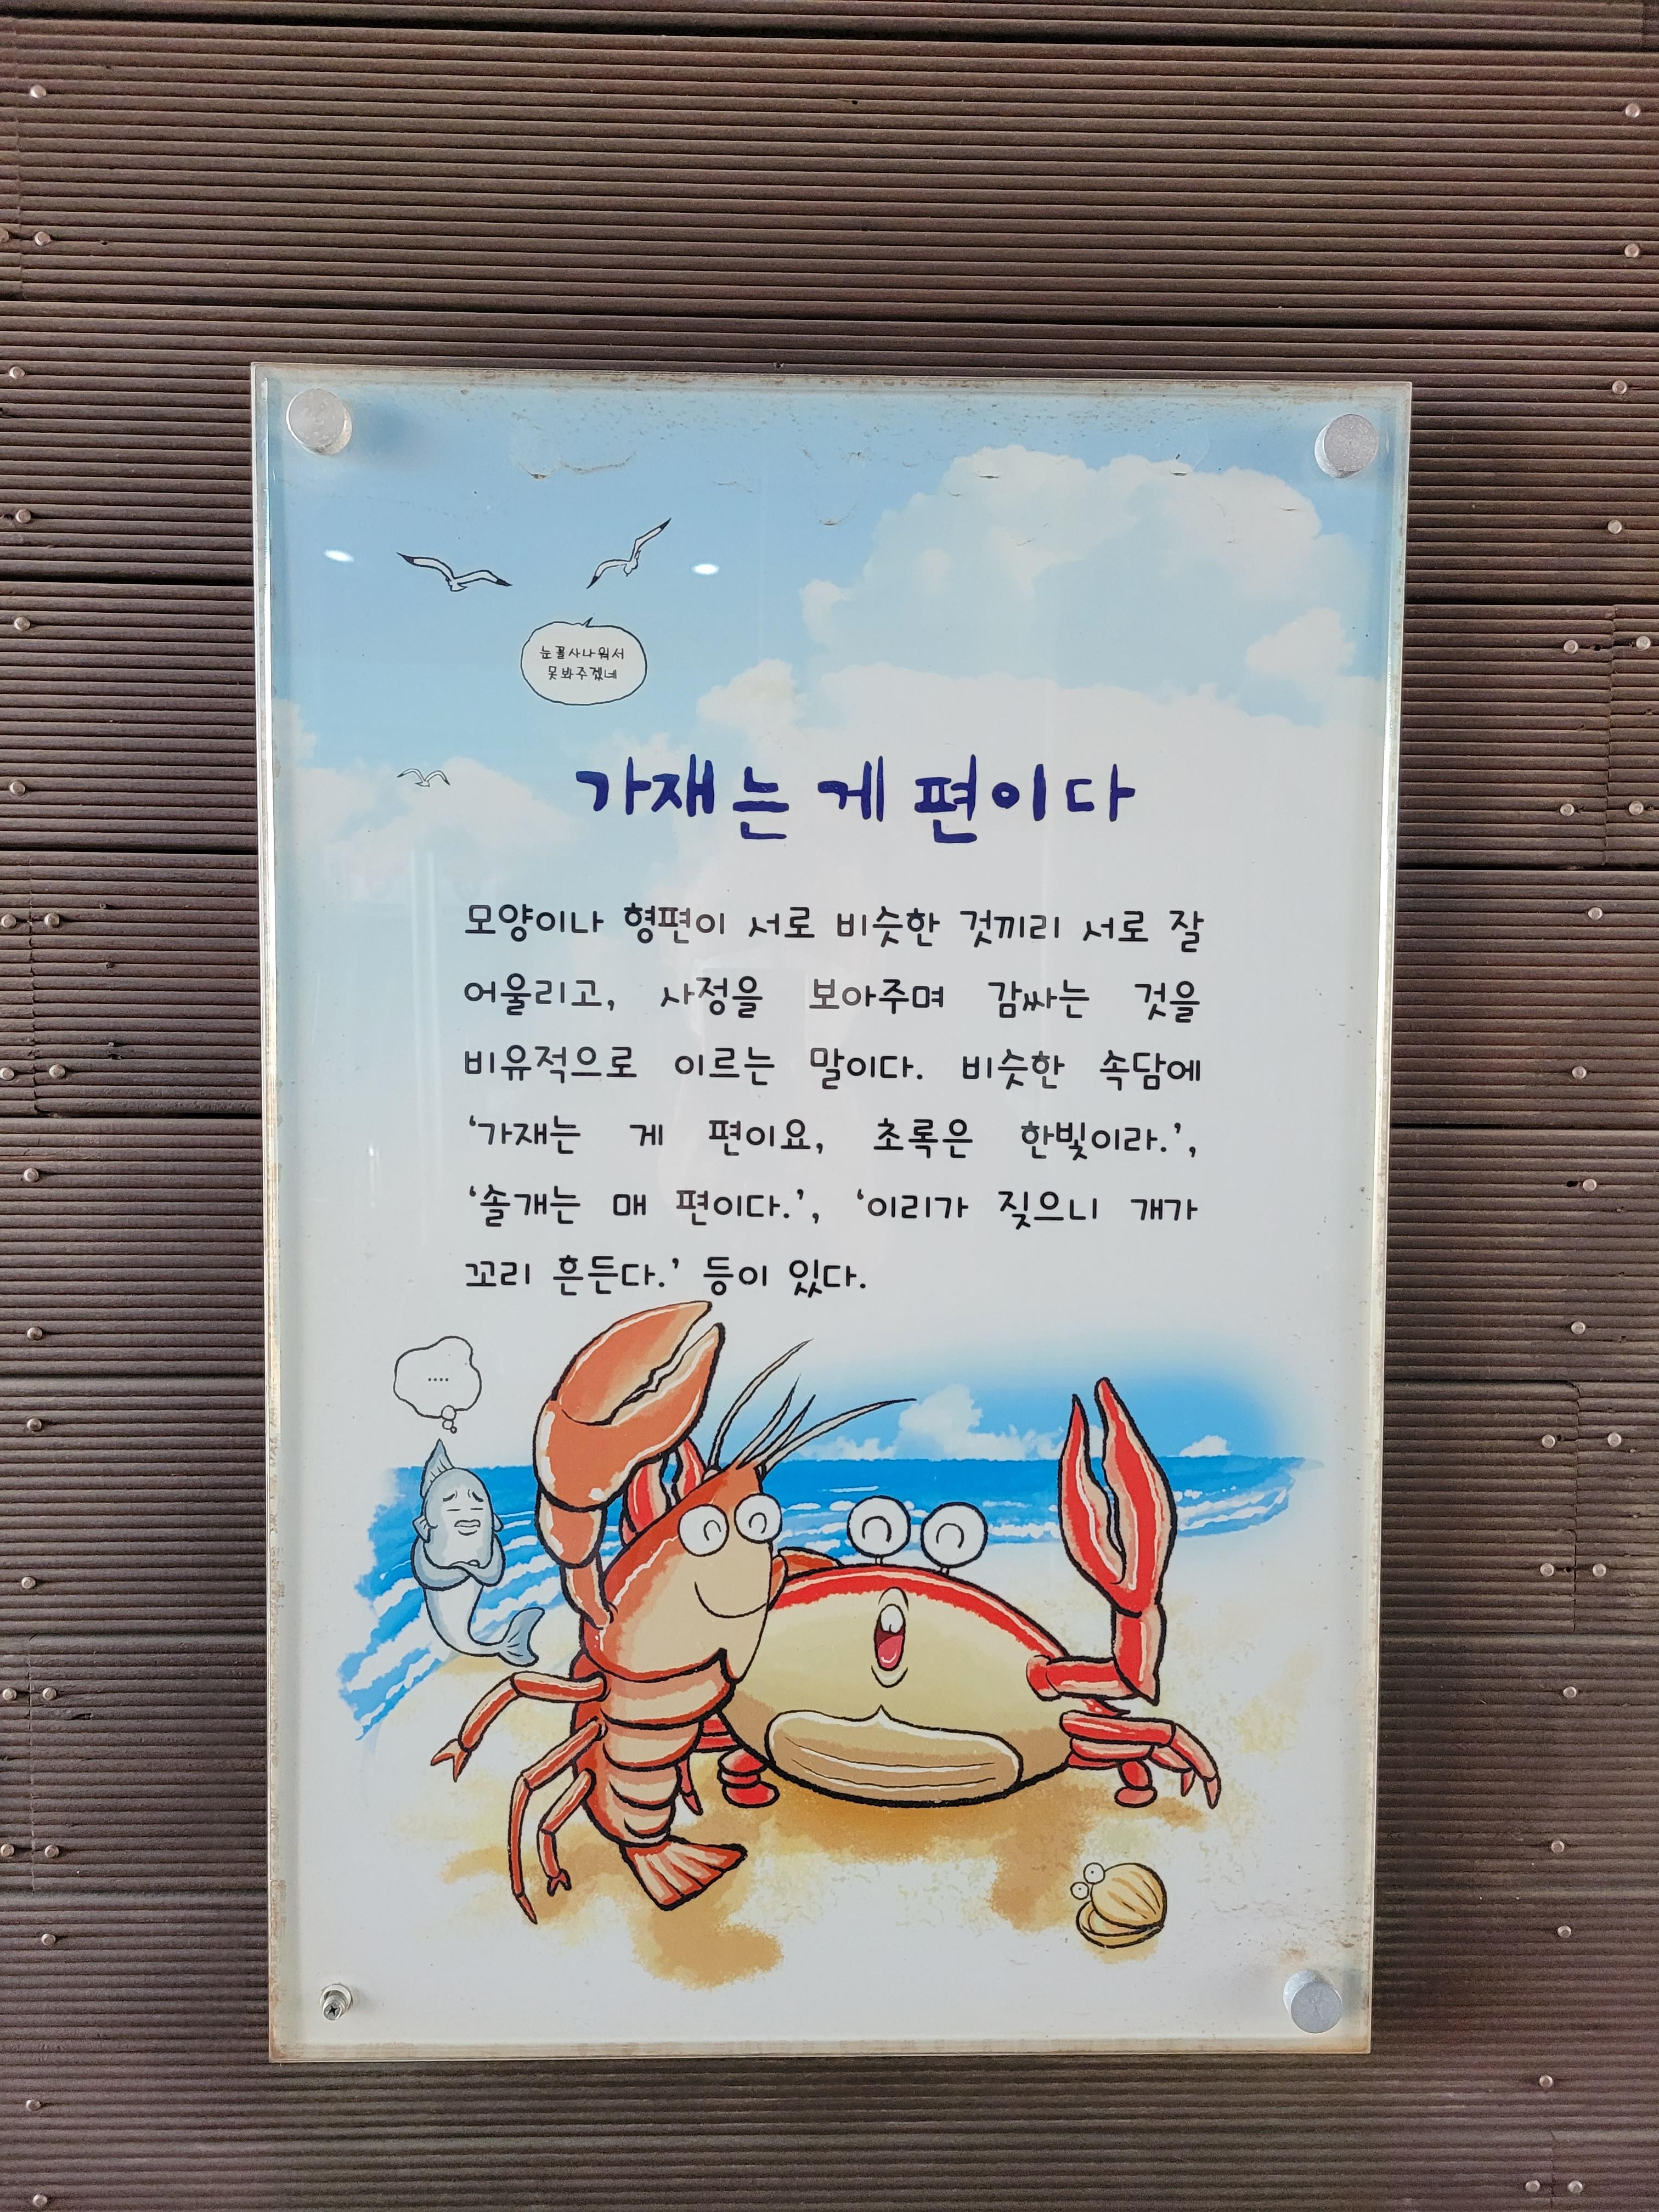 눈꼴사나워서
못봐주겠네
가재는 게 편이다
모양이나 형편이 서로 비슷한 것끼리 서로 잘
어울리고, 사정을 보아주며 감싸는 것을
비유적으로 이르는 말이다. 비슷한 속담에
‘가재는 게 편이요, 초록은 한빛이라.’,
‘솔개는 매 편이다.’, ‘이리가 짖으니 개가
꼬리 흔든다.’ 등이 있다.
....